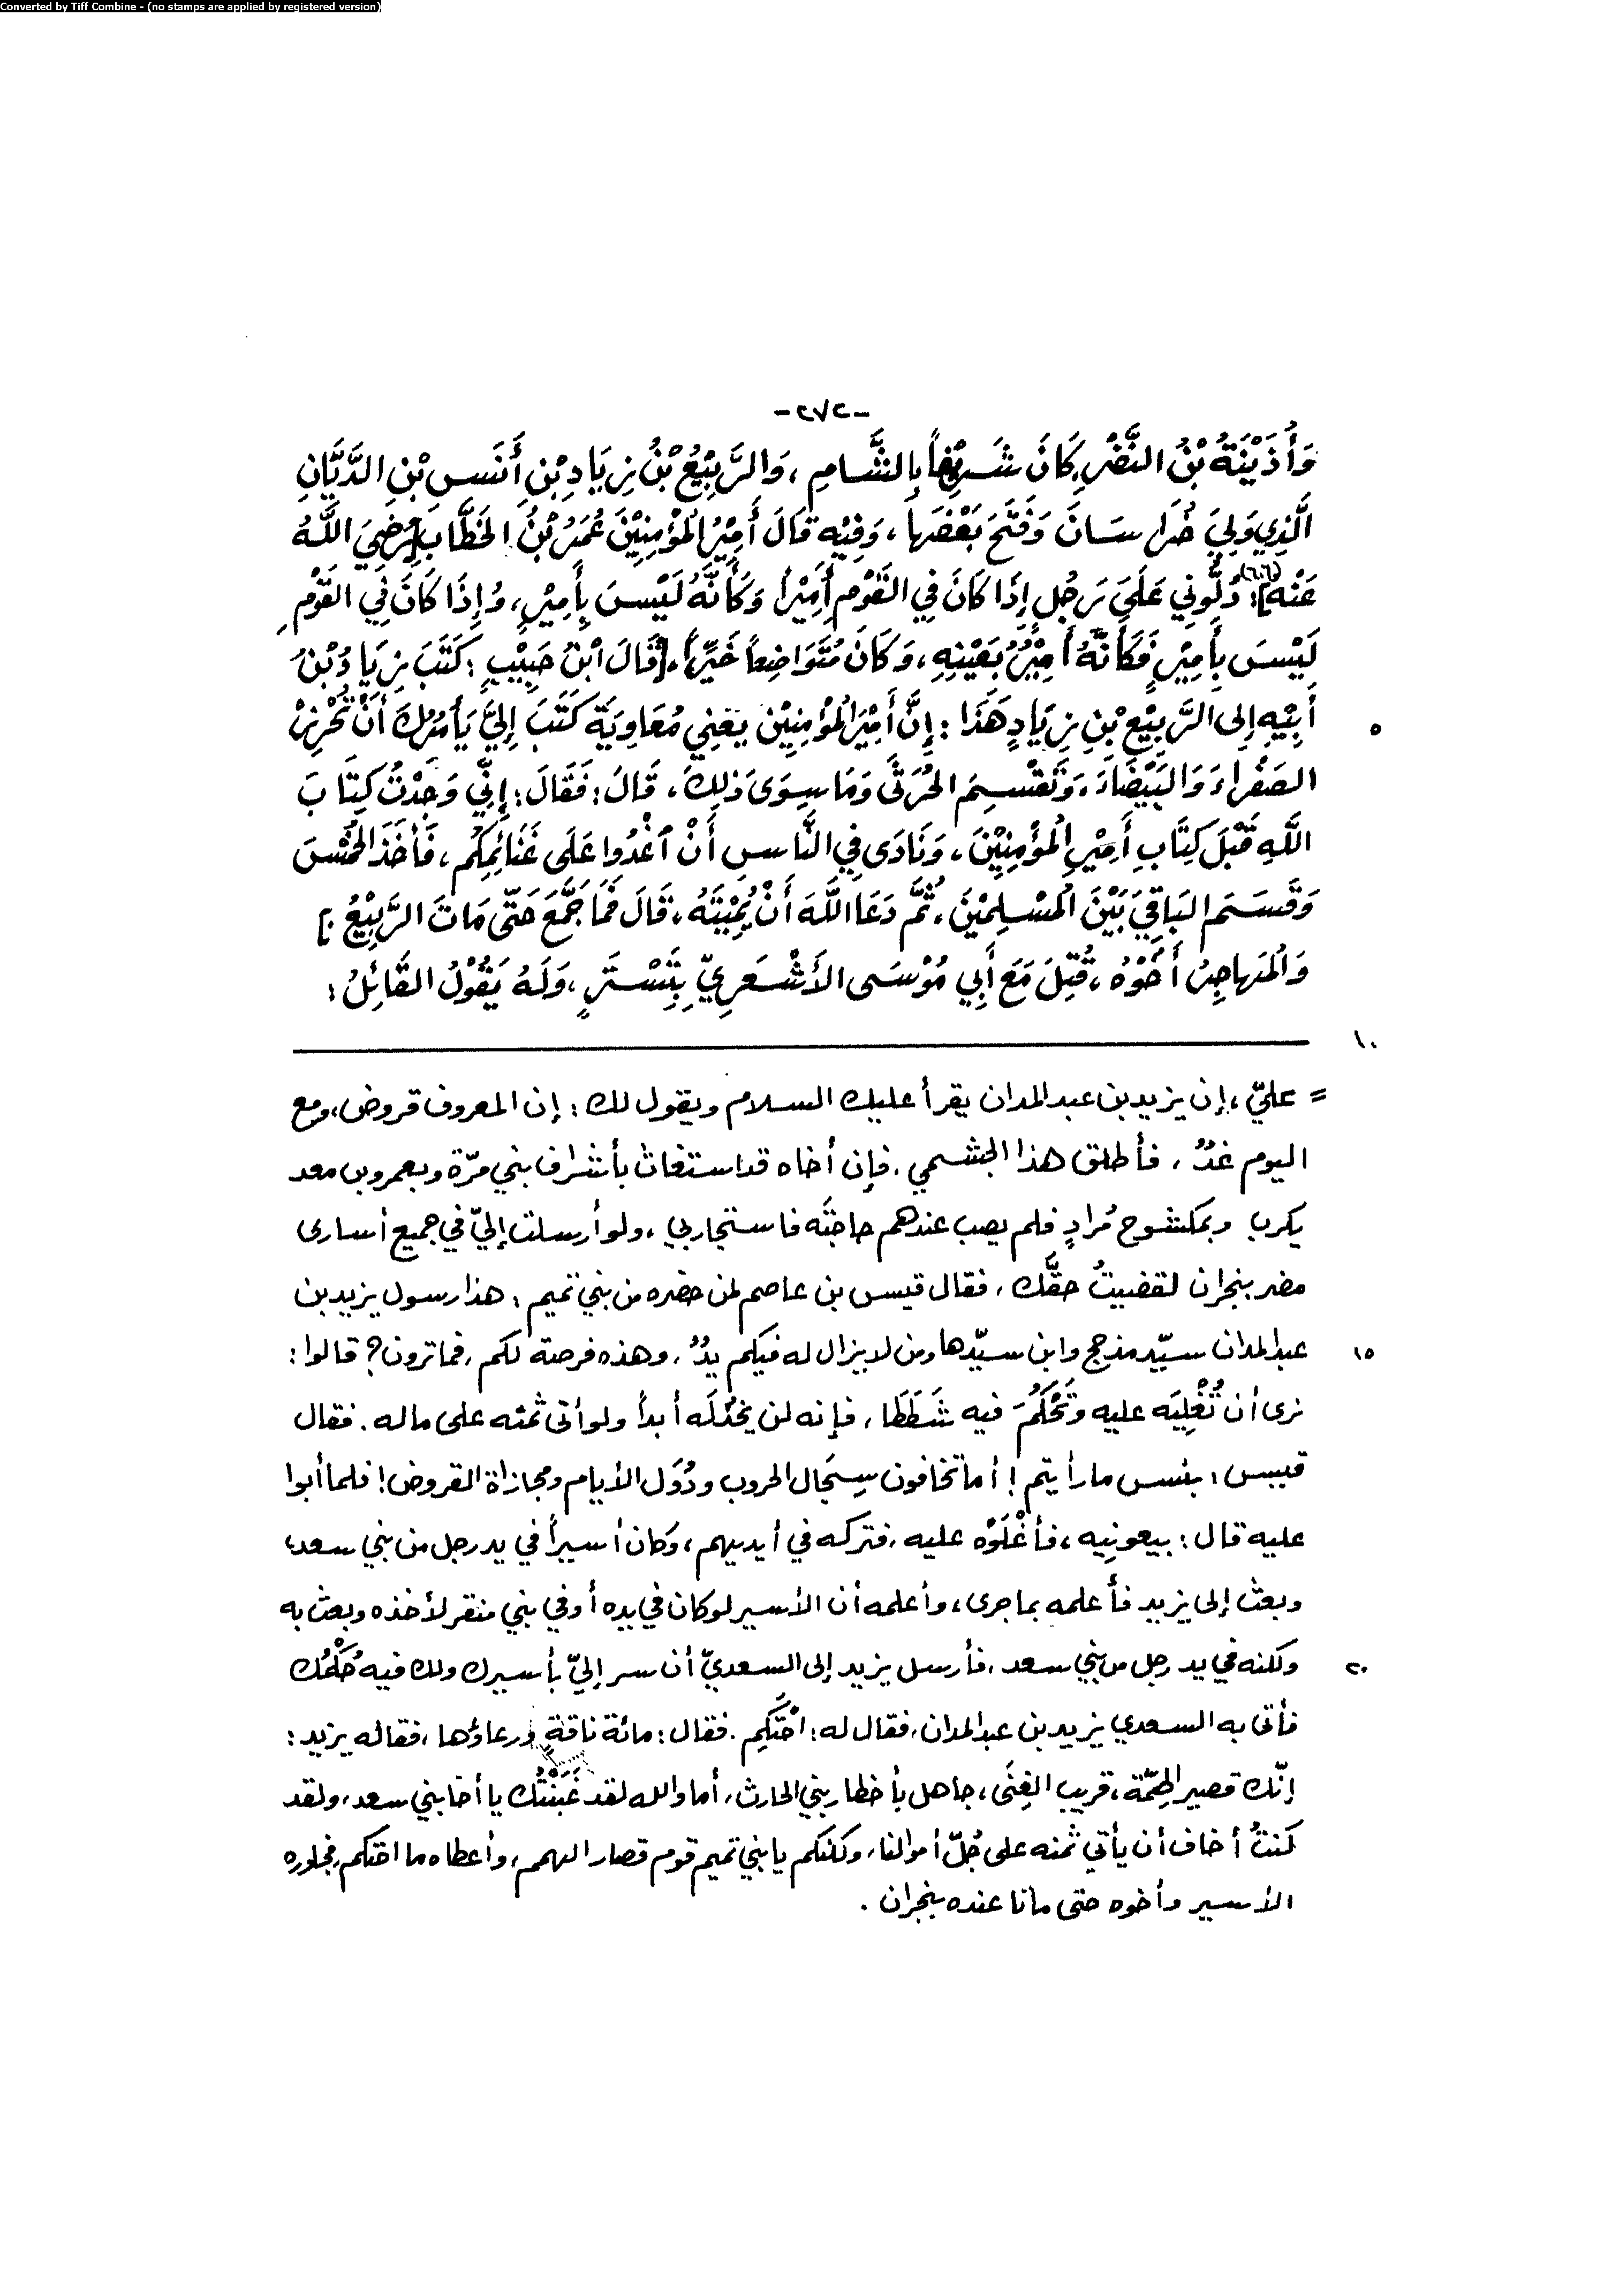 Converted by Tiff Combine - (no stamps are applied by registered version)
-٢٧٢-
وَأُذَيْنَةُ بْنُ النَّضْرِ كَانَ شَرِيْفاً بِالشَّامِ، وَالرَّبِيْعُ بْنُ زِيَادِ بْنِ أَنَسِ بْنِ الدَّيَّانِ
الَّذِي وَلِيَ خُرَاسَانَ وَفَتَحَ بَعْضَهَا، وَفِيْهِ قَالَ أَمِيْرُ المُؤْمِنِيْنَ عُمَرُ بْنُ الخَطَّابِ [رَضِيَ اللَّهُ
عَنْهُ]: دُلُّونِي عَلَى رَجُلٍ إِذَا كَانَ فِي القَوْمِ أَمِيْراً وَكَأَنَّهُ لَيْسَ بِأَمِيْرٍ، وَإِذَا كَانَ فِي القَوْمِ
لَيْسَ بِأَمِيْرٍ فَكَأَنَّهُ أَمِيْرٌ بِعَيْنِهِ، وَكَانَ مُتَوَاضِعاً خَيِّراً، [قَالَ ابْنُ حَبِيْبٍ: كَتَبَ زِيَادُ بْنُ
أَبِيْهِ إِلى الرَّبِيْعِ بْنِ زِيَادٍ هَذَا: إِنَّ أَمِيْرَ المُؤْمِنِيْنَ يَعْنِي مُعَاوِيَةَ كَتَبَ إِلَيَّ يَأْمُرُكَ أَنْ تُحْرِزَ
٥
الصَفْرَاءَ وَالبَيْضَاءَ، وَتَقْسِمَ الخُرْثَى وَمَا سِوَى ذَلِكَ، قَالَ: فَقَالَ: إِنِّي وَجَدْتُ كِتَابَ
اللَّهِ قَبْلَ كِتَابِ أَمِيْرِ المُؤْمِنِيْنَ، وَنَادَى فِي النَّاسِ أَنْ اغْدُوا عَلَى غَنَائِمِكُم، فَأَخَذَ الخُمْسَ
وَقَسَمَ البَاقِيَ بَيْنَ المُسْلِمِيْنَ، ثُمَّ دَعَا اللَّهَ أَنْ يُمِيْتَهُ، قَالَ فَمَا جَمَّعَ حَتَّى مَاتَ الرَّبِيْعُ.]
وَالمُهَاجِرُ أَخُوْهُ، قُتِلَ مَعَ أَبِي مُوْسَى الأَشْعَرِيِّ بِتُسْتَرٍ، وَلَهُ يَقُوْلُ القَائِلُ:
١٠
= عليّ، إن يزيد بن عبد المدان يقرأ عليك السلام ويقول لك: إن المعروف قروض، ومع
اليوم غدٌ، فأطلق هذا الجشمي، فإن أخاه قد استغاث بأشراف بني مرّة وبعمرو بن معد
يكرب وبمكشوح مُرادٍ فلم يصب عندهم حاجتَه فاستجار بي، ولو أرسلت إليّ في جميع أسارى
مضر بنجران لقضيتُ حقَّك، فقال قيس بن عاصم لمن حضره من بني تميم: هذا رسول يزيد بن
عبد المدان سيّد مذحج وابن سيّدها ومن لا يزال له فيكم يدٌ، وهذه فرصة لكم، فما ترون؟ قالوا:
١٥
نرى أن نُغْلِيَه عليه وَنَحْكُمَ فيه شَطَطَا، فإنه لن يخذُلَه أبداً ولو أتى ثمنه على ماله. فقال
قيس: بئس ما رأيتم! أما تخافون سِجَال الحروب ودُوَل الأيام ومجازاة القروض! فلما أبوا
عليه قال: بيعونيه، فأغْلَوْه عليه، فتركه في أيديهم، وكان أسيراً في يد رجل من بني سعد،
وبعث إلى يزيد فأعلمه بما جرى، وأعلمه أن الأسير لو كان في يده أو في بني منقر لأخذه وبعث به
ولكنه في يد رجل من بني سعد، فأرسل يزيد إلى السعديّ أن سر إليّ بأسيرك ولك فيه حُكْمُك
٢٠
فأتى به السعدي يزيد بن عبد المدان، فقال له: احْتَكِم. فقال: مائة ناقةٍ ورعاؤها، فقال له يزيد:
إنّك قصير الهِمّة، قريب الغِنَى، جاهل بأخطار بني الحارث، أما والله لقد غَبَنْتُك يا أخا بني سعد، ولقد
كنتُ أخاف أن يأتي ثمنه على جُلّ أموالنا، ولكنكم يا بني تميم قوم قصار الهمم، وأعطاه ما احتكم، فجاوره
الأسير وأخوه حتى ماتا عنده بنجران.